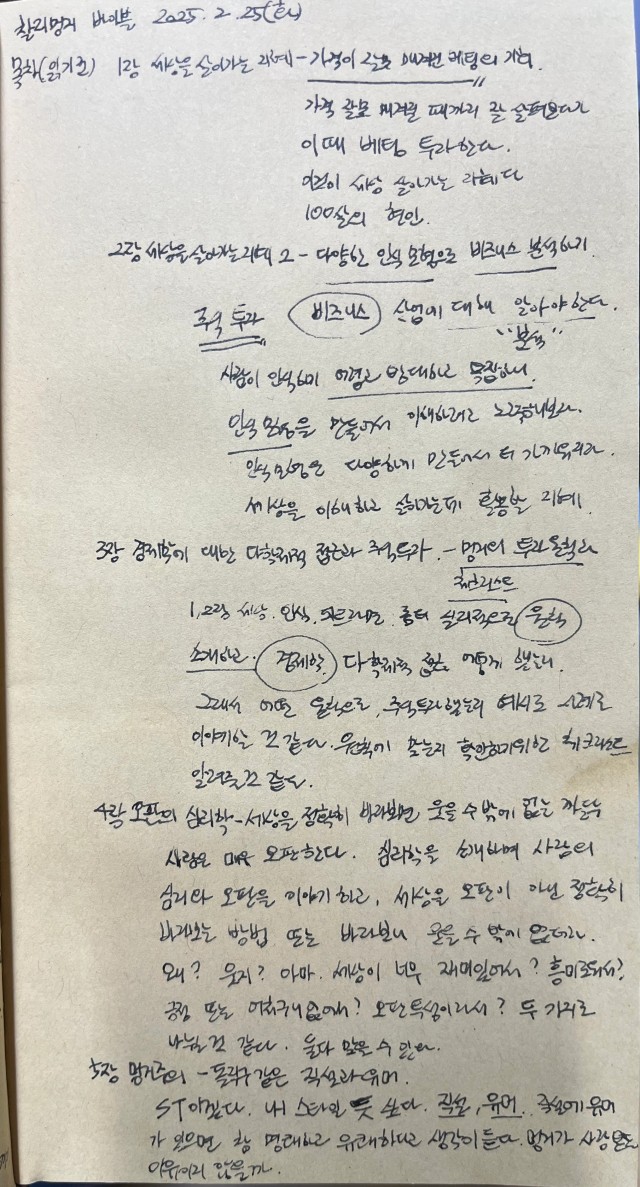 찰리멍거 바이블 2025. 2. 25(화)
목차(읽기전) 1장 세상을 살아가는 지혜 - 가격이 잘못 매겨진 베팅의 기회.
가격 잘못 매겨질 때까지 잘 살펴본다가
이때 베팅 투자한다.
이것이 세상 살아가는 지혜다
100살의 현인.
2장 세상을 살아가는 지혜 2 - 다양한 인식 모형으로 비즈니스 분석하기.
주식 투자 비즈니스 산업에 대해 알아야 한다.
"분석"
사람이 인식하기 어렵고 방대하고 복잡하니.
인식 모형을 만들어서 이해하려고 노력해보라.
인식 모형은 다양하게 만들어서 더 가까워지라.
세상을 이해하고 살아가는데 활용할 지혜.
3장 경제학에 대한 다학제적 접근과 주식투자. - 멍거의 투자 원칙과
체크리스트
1, 2장 세상. 인식. 좀더 실리적으로 원칙
소개하고. 경제학. 다학제적 접근 어떻게 했는지.
그래서 어떤 원칙으로, 주식투자 했는지 예시로 사례로
이야기하는 것 같다. 원칙에 맞는지 확인하기위한 체크리스트
알려주는것 같다.
4장 오판의 심리학 - 세상을 정확히 바라보면 웃을 수 밖에 없는 까닭은
사람은 매우 오판한다. 심리학을 소개하며 사람의
심리와 오판을 이야기 하고, 세상을 오판이 아닌 정확히
바라보는 방법 또는 바라보니 웃을 수 밖에 없더라.
왜? 웃지? 아마. 세상이 너무 재미있어서? 흥미로워서?
긍정 또는 어처구니없어서? 오판투성이라서? 두 가지로
나뉘는 것 같다. 둘다 맞을 수 있다.
5장 멍거주의 - 폭죽 같은 직설과 유머.
ST 아닐까. 내 스타일 듯 싶다. 직설, 유머. 직설에 유머
가 있으면 참 명쾌하고 유쾌하다고 생각이 든다. 멍거가 사랑받는
이유이지 않을까.